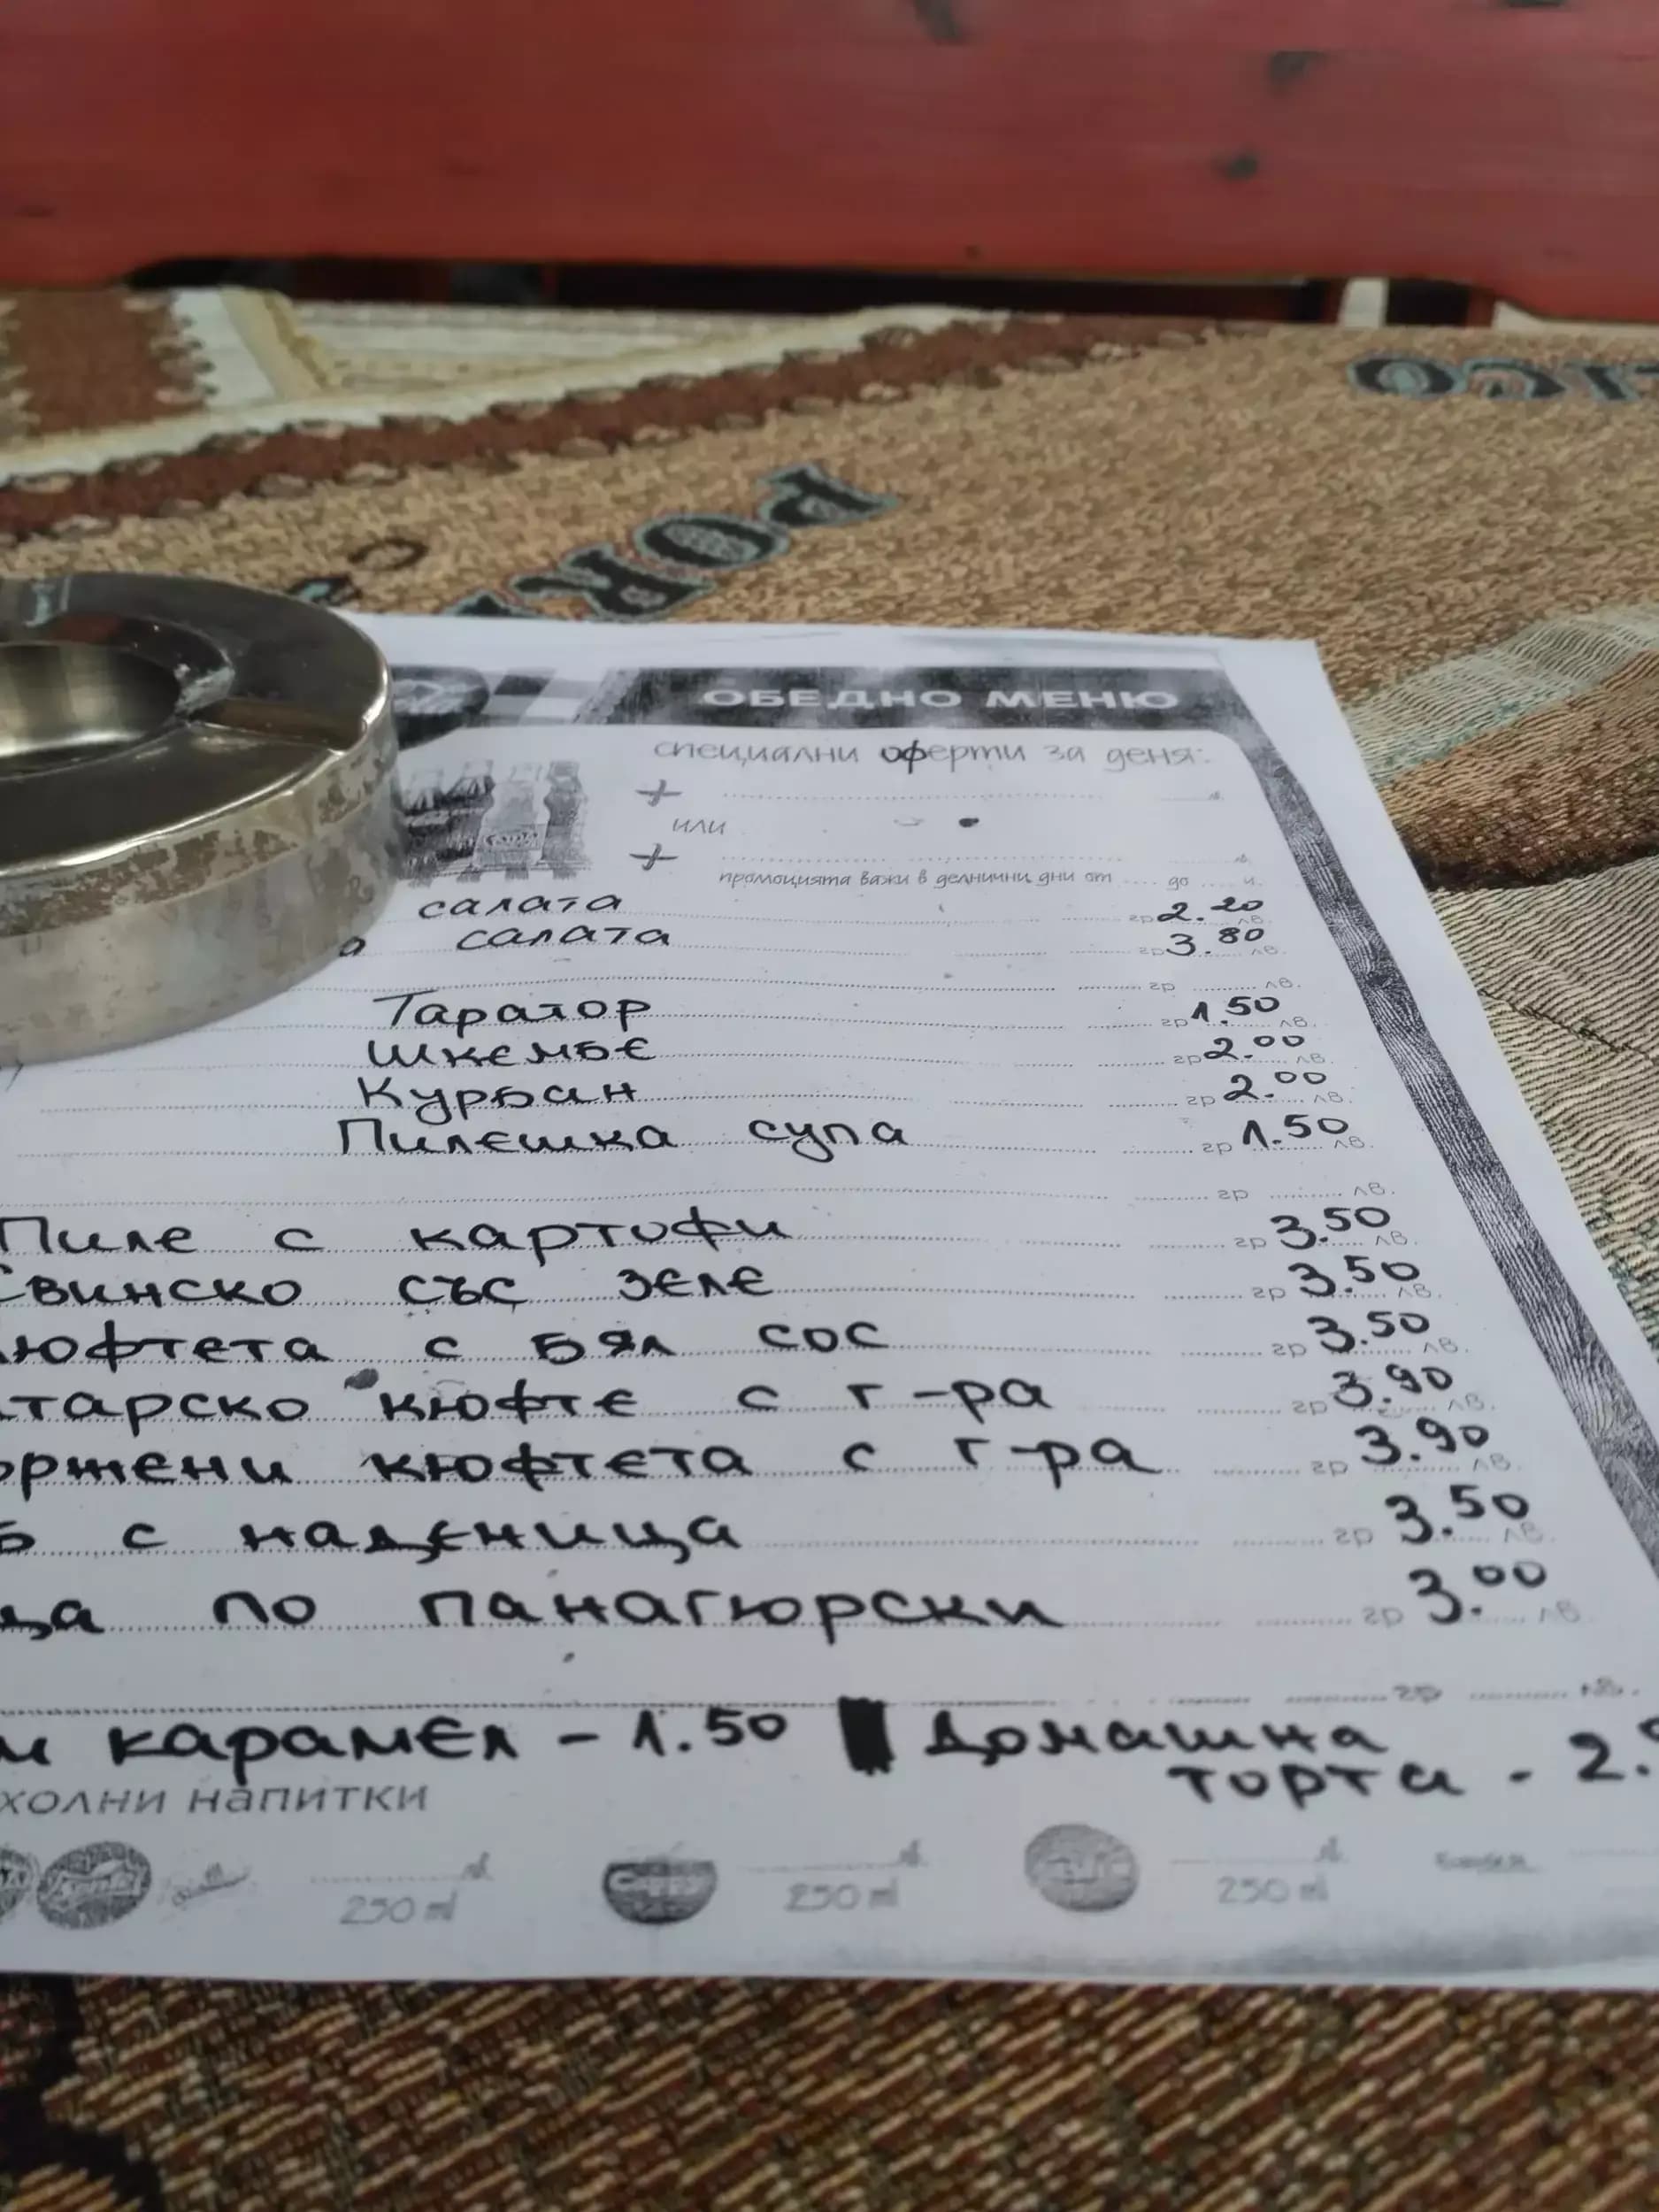 ОБЕДНО МЕНЮ
специални оферти за деня:
+ лв.
или
+ лв.
промоцията важи в делнични дни от .... до .... ч.
салата гр 2.20 лв.
салата гр 3.80 лв.
гр лв.
Таратор гр 1.50 лв.
Шкембе гр 2.00 лв.
Курбан гр 2.00 лв.
Пилешка супа гр 1.50 лв.
гр лв.
Пиле с картофи гр 3.50 лв.
Свинско със зеле гр 3.50 лв.
юфтета с бял сос гр 3.50 лв.
тарско кюфте с г-ра гр 3.90 лв.
ржени кюфтета с г-ра гр 3.90 лв.
б с наденица гр 3.50 лв.
ца по панагюрски гр 3.00 лв.
гр лв.
м карамел - 1.50 Домашна
торта - 2.
холни напитки
250 ml 250 ml 250 ml